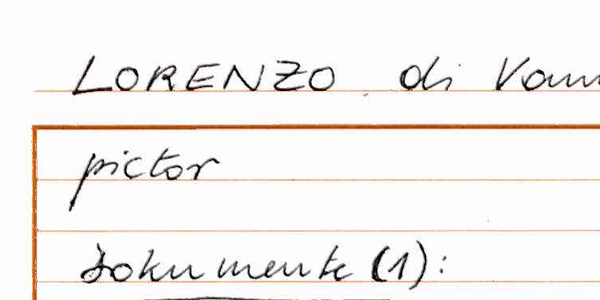 LORENZO di
pictor
Dokumente (1):